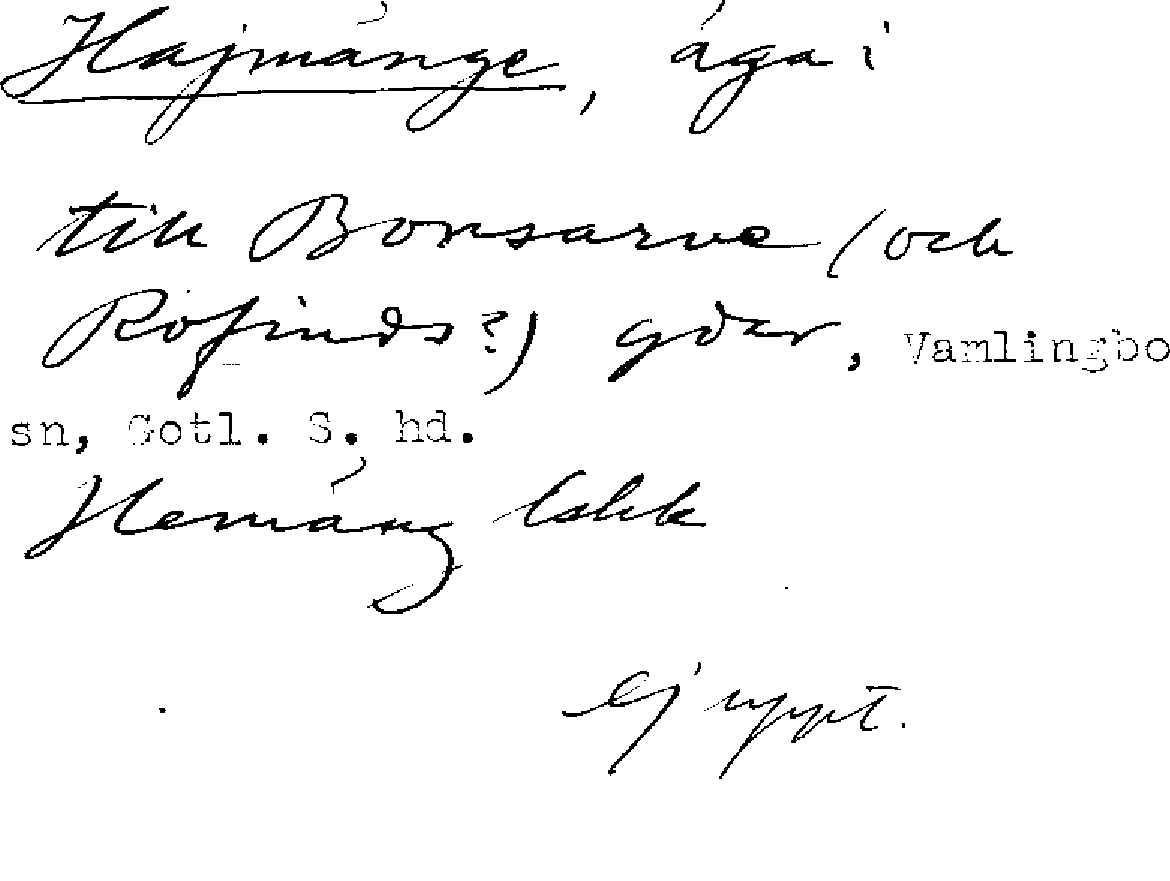 Hajmånge, äga i
till Bonsarve (och
Rofinds?) gdar, Vamlingbo
sn, Gotl. S. hd.
Hemäng lskk
Ej uppt.